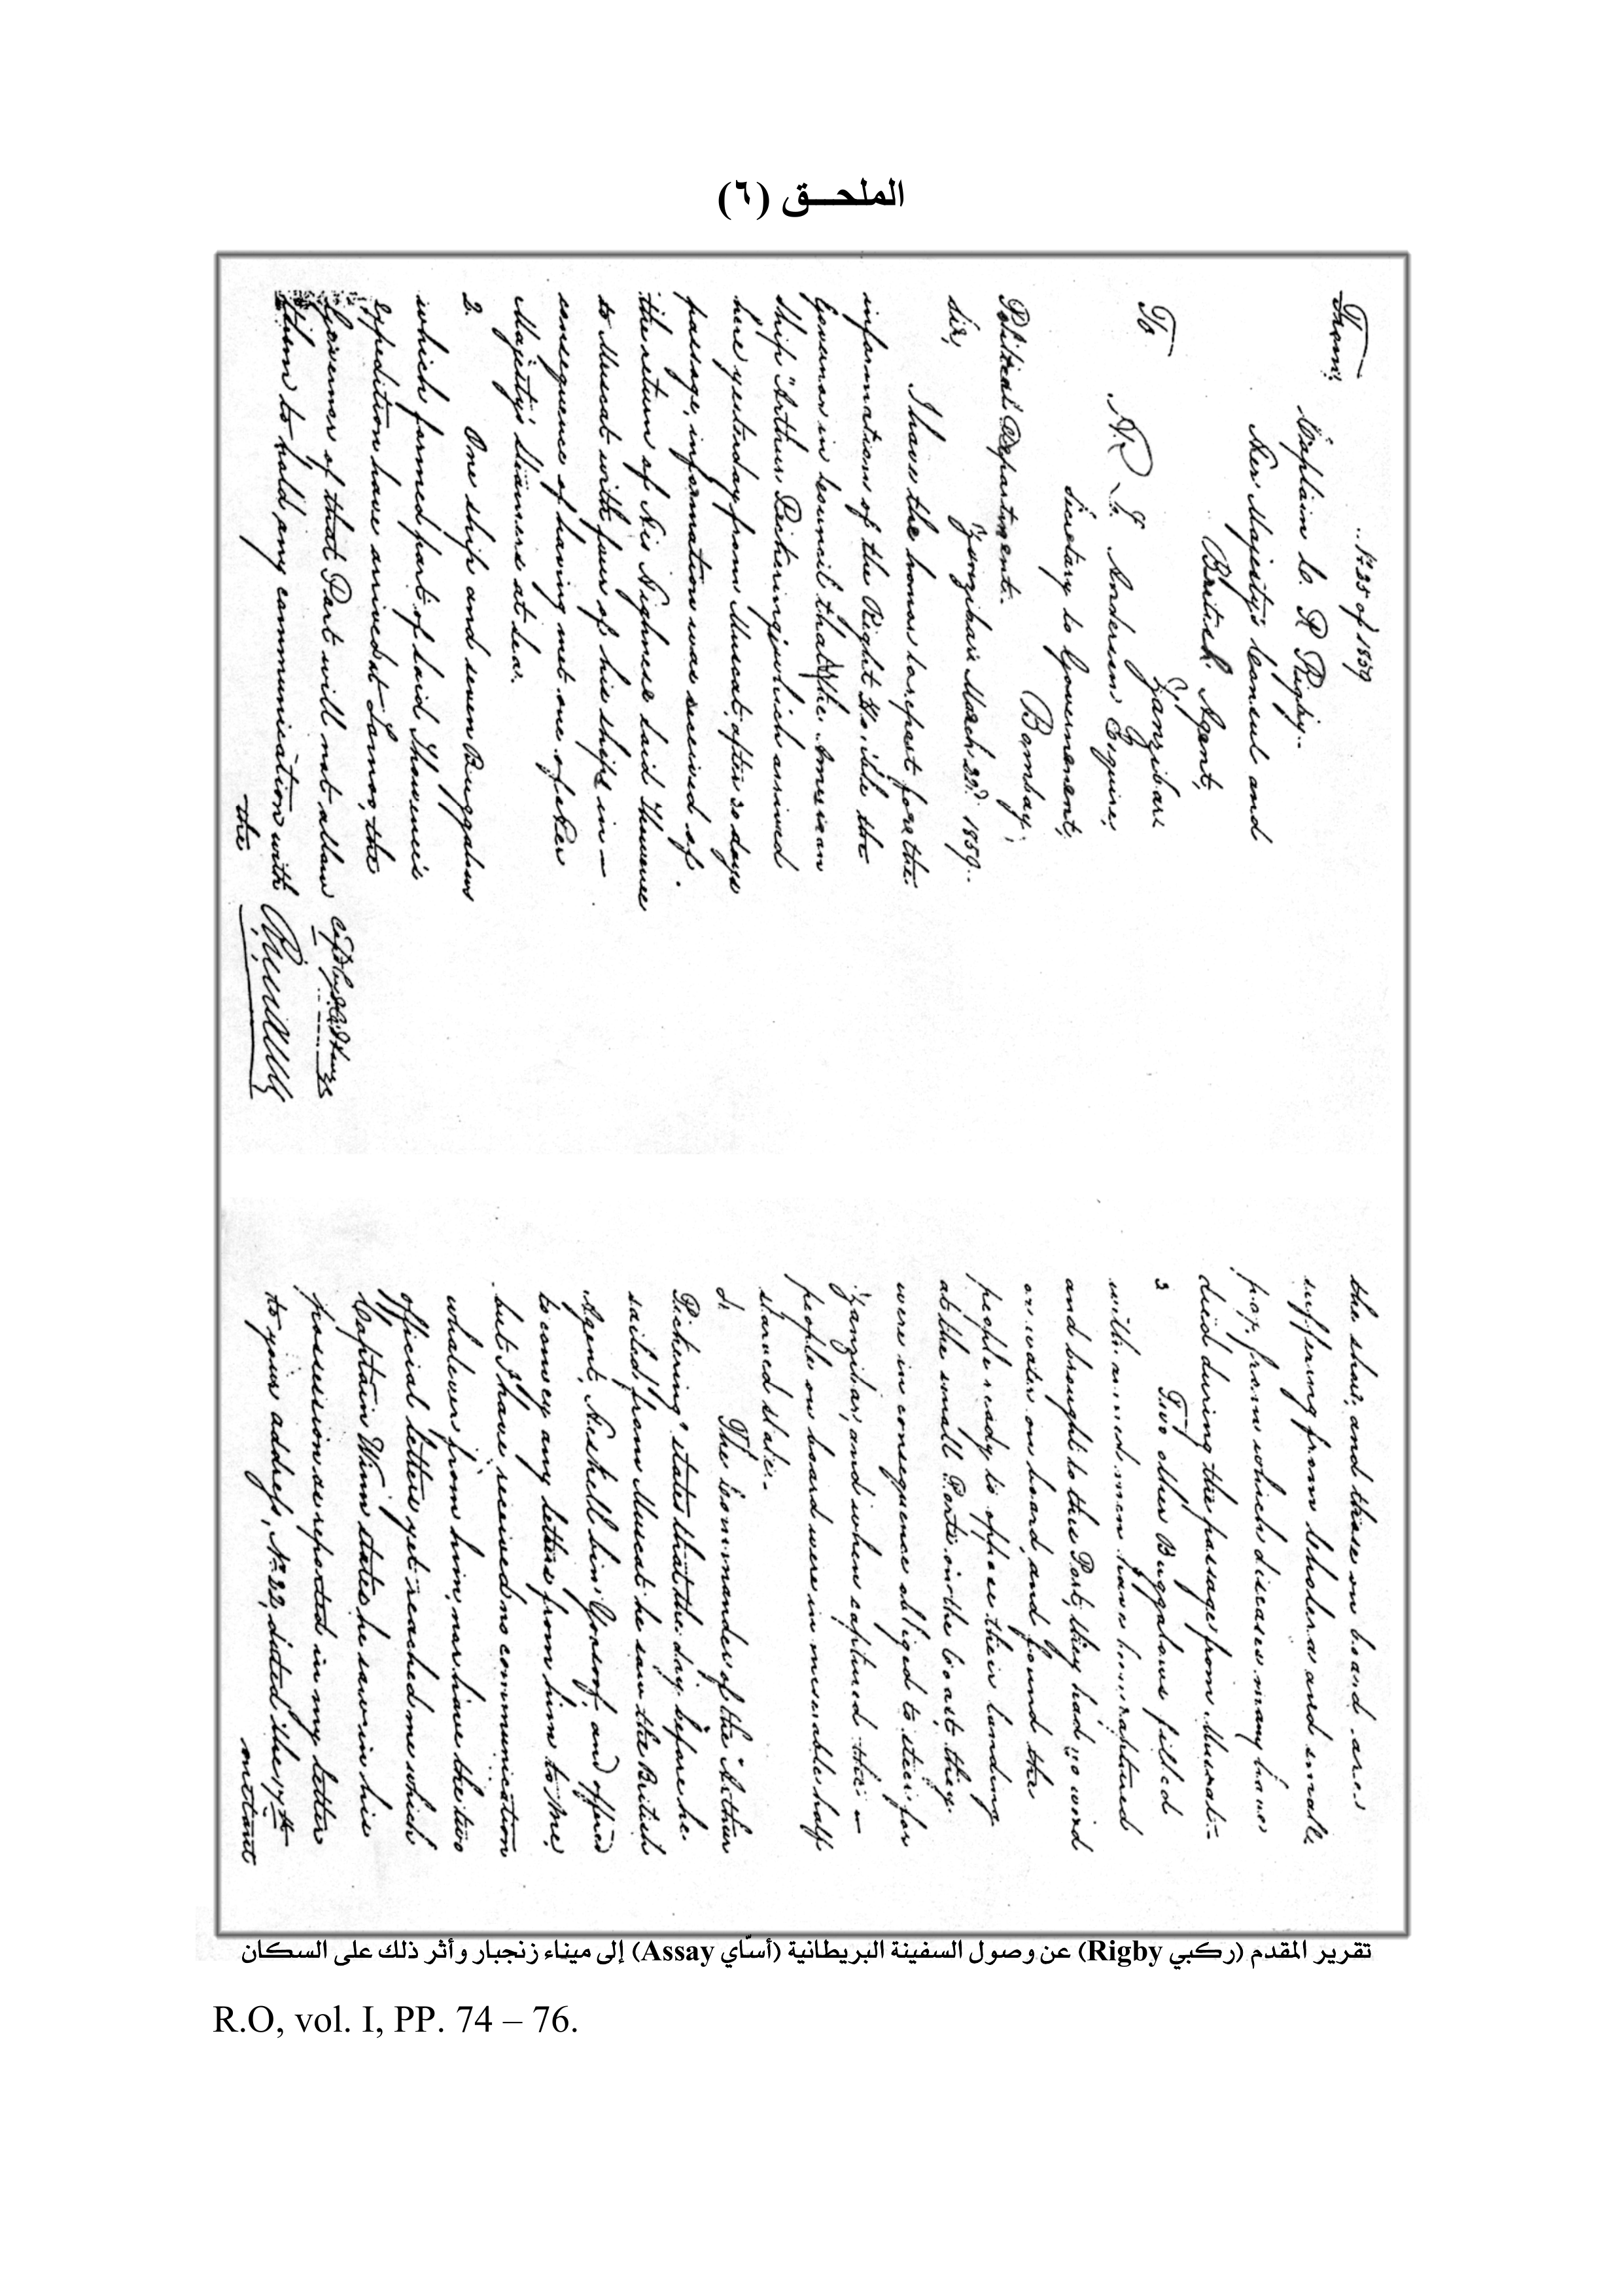 الملحــق (٦)
No 35 of 1859
From
Captain C. P. Rigby
Her Majesty's Consul and
British Agent,
Zanzibar
To
H. L. Anderson Esquire,
Secretary to Government,
Bombay,
Political Department.
Zanzibar March 22d 1859.
Sir,
I have the honor to report for the
information of the Right Ho'ible the
Governor in Council that the American
Ship "Arthur Pickering" which arrived
here yesterday from Muscat, after 20 days
passage, information was received of
the return of His Highness Said Thuwenee
to Muscat with four of his ships in
consequence of having met one of Her
Majesty's Steamers at sea.
2. One ship and seven Buggalows
which formed part of Said Thowenee's
expedition have arrived at Lamoo, the
Governor of that Port will not allow
them to hold any communication with
the
the shore, and those on board are
suffering from cholera and small
pox, from which diseases many have
died during the passage from Muscat.
3 Two other Buggalows filled
with armed men have been captured
and brought to this Port, they had no wood
or water on board, and found the
people ready to oppose their landing
at the small Ports on the Coast, they
were in consequence obliged to steer for
Zanzibar, and when captured the
people on board were in miserable half
starved state.
4. The Commander of the "Arthur
Pickering" states that the day before he
sailed from Muscat he saw the British
Agent, Heskell bin Yoosoof, and offered
to convey any letters from him to me,
but I have received no communication
whatever from him, nor have the two
official letters yet reached me which
Captain Winn states he saw in his
possession as reported in my letter
to your address, No 22, dated the 17th
instant
تقرير المقدم (ركبي Rigby) عن وصول السفينة البريطانية (أسّاي Assay) إلى ميناء زنجبار وأثر ذلك على السكان
R.O, vol. I, PP. 74 – 76.